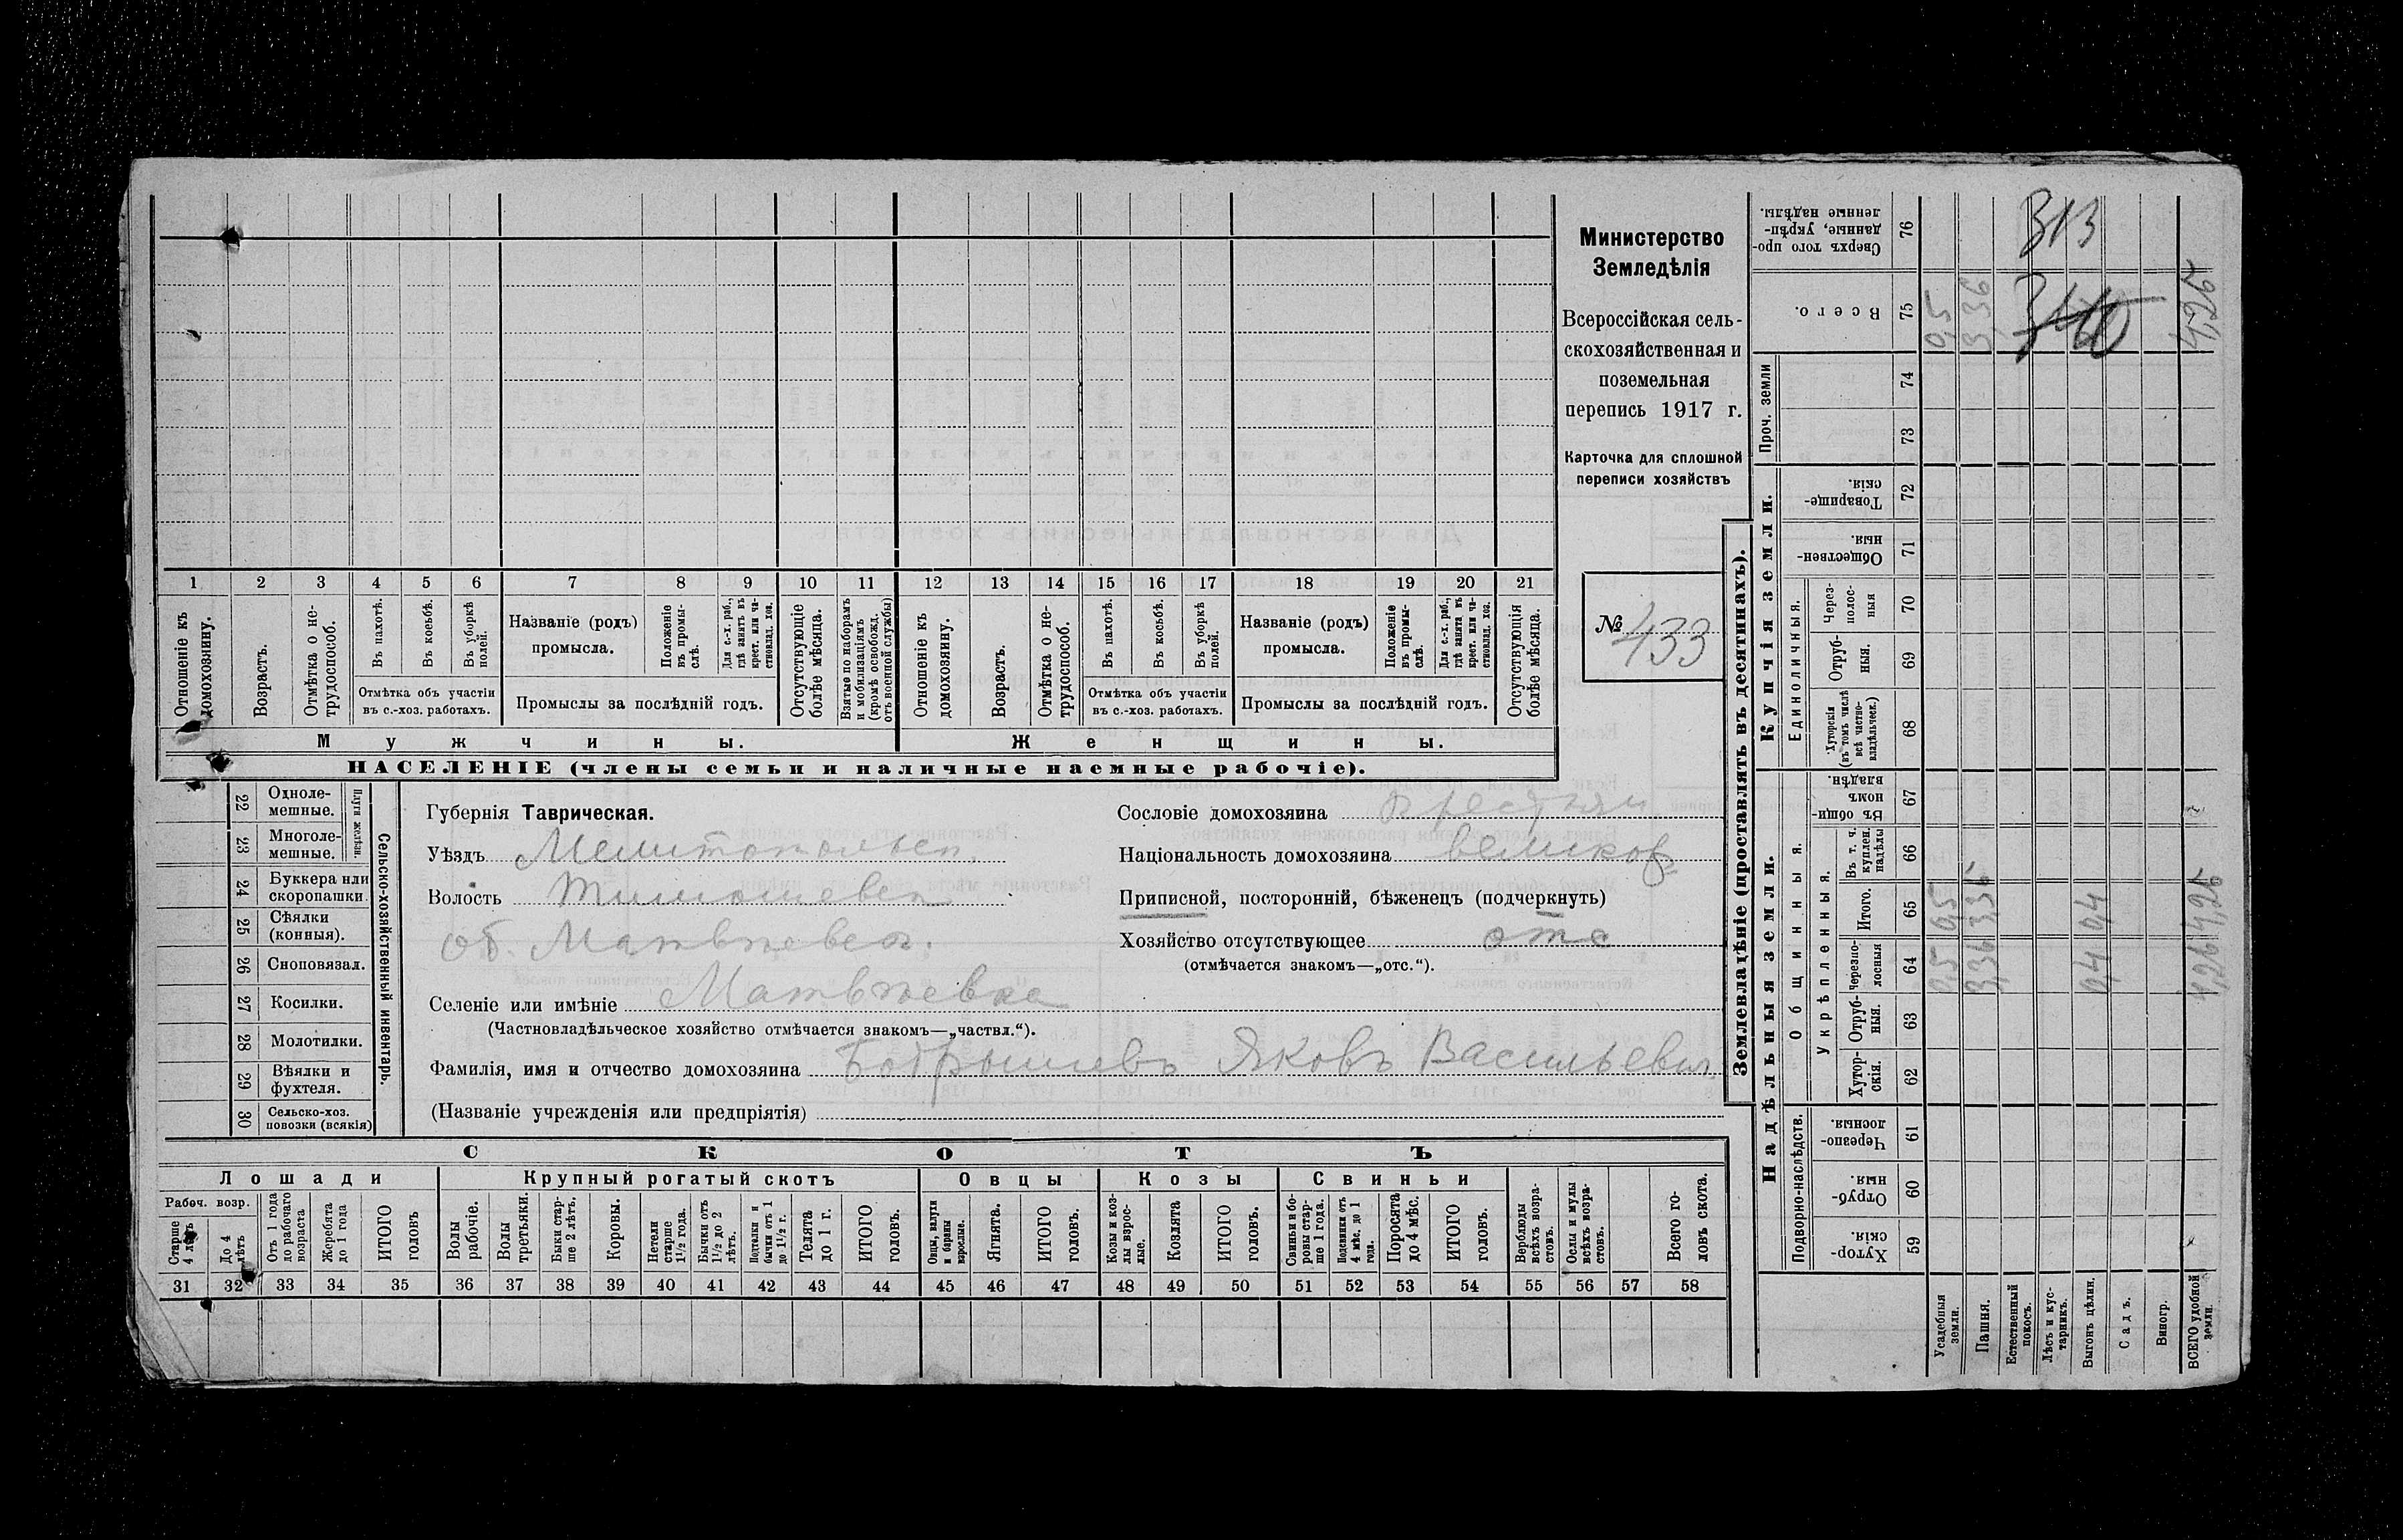 Министерство
Земледѣлія
Всероссійская сель-
скохозяйственная и
поземельная
перепись 1917 г.
Карточка для сплошной
переписи хозяйствъ
№ 433
1 2 3 4 5 6 7 8 9 10 11 12 13 14 15 16 17 18 19 20 21
Отношеніе къ домохозяину.
Возрастъ.
Отмѣтка о не-трудоспособ.
Въ пахотѣ.
Въ косьбѣ.
Въ уборкѣ полей.
Отмѣтка объ участіи
въ с.-хоз. работахъ.
Названіе (родъ)
промысла.
Положеніе въ промы-слѣ.
Для с.-х. раб., гдѣ занятъ въ крест. или ча-стновлад. хоз.
Промыслы за послѣдній годъ.
Отсутствующіе болѣе мѣсяца.
Взятые по наборамъ и мобилизаціямъ (кромѣ освобожд. отъ военной службы)
Отношеніе къ домохозяину.
Возрастъ.
Отмѣтка о не-трудоспособ.
Въ пахотѣ.
Въ косьбѣ.
Въ уборкѣ полей.
Отмѣтка объ участіи
въ с.-хоз. работахъ.
Названіе (родъ)
промысла.
Положеніе въ промы-слѣ.
Для с.-х. раб., гдѣ занята въ крест. или ча-стновлад. хоз.
Промыслы за послѣдній годъ.
Отсутствующія болѣе мѣсяца.
Мужчины.
Женщины.
НАСЕЛЕНІЕ (члены семьи и наличные наемные рабочіе).
22 Однолемешные.
23 Многолемешные.
Плуги желѣзн.
24 Буккера или скоропашки.
25 Сѣялки (конныя).
26 Сноповязал.
27 Косилки.
28 Молотилки.
29 Вѣялки и фухтеля.
30 Сельско-хоз. повозки (всякія)
Сельско-хозяйственный инвентарь.
Губернія Таврическая.
Уѣздъ Мелитопольск.
Волость Тимошевск
об. Матвѣевск.
Селеніе или имѣніе Матвѣевка
(Частновладѣльческое хозяйство отмѣчается знакомъ—„частвл.“).
Фамилія, имя и отчество домохозяина Бадрышевъ Яковъ Васильевич
(Названіе учрежденія или предпріятія)
Сословіе домохозяина крестьян
Національность домохозяина великор
Приписной, посторонній, бѣженецъ (подчеркнуть)
Хозяйство отсутствующее отс
(отмѣчается знакомъ—„отс.“).
СКОТЪ
Лошади
Крупный рогатый скотъ
Овцы
Козы
Свиньи
Рабоч. возр.
Старше 4 лѣтъ
До 4 лѣтъ
Отъ 1 года до рабочаго возраста
Жеребята до 1 года
ИТОГО головъ
Волы рабочіе.
Волы третьяки.
Быки стар-ше 2 лѣтъ.
Коровы.
Нетели старше 1½ года.
Бычки отъ 1½ до 2 лѣтъ.
Подтелки и бычки отъ 1 до 1½ г.
Телята до 1 г.
ИТОГО головъ.
Овцы, валухи и бараны взрослые.
Ягнята.
ИТОГО головъ.
Козы и коз-лы взрос-лые.
Козлята
ИТОГО головъ.
Свиньи и бо-ровы стар-ше 1 года.
Подсвинки отъ 4 мѣс. до 1 года.
Поросята до 4 мѣс.
ИТОГО головъ.
Верблюды всѣхъ возра-стовъ.
Ослы и мулы всѣхъ возра-стовъ.
Всего го-ловъ скота.
31 32 33 34 35 36 37 38 39 40 41 42 43 44 45 46 47 48 49 50 51 52 53 54 55 56 57 58
Землевладѣніе (проставлять въ десятинахъ).
Купчія земли.
Надѣльныя земли.
Проч. земли
Единоличныя.
Общинныя.
Укрѣпленныя.
Подворно-наслѣдств.
Сверхъ того про-данные, укрѣп-ленные надѣлы. 76
313
Всего. 75 0,5 3,36 4,26
74
73
Товарище-скія. 72
Обществен-ныя. 71
Через-полос-ныя 70
Отруб-ныя. 69
Хуторскія (въ томъ числѣ всѣ частно-владѣльческ.) 68
Въ общи-номъ владѣн. 67
Въ т. ч. куплен. надѣлы 66
Итого. 65 0,5 3,36 0,4 4,26
Черезпо-лосныя 64 0,5 3,36 0,4 4,26
Отруб-ныя. 63
Хутор-скія. 62
Черезпо-лосныя. 61
Отруб-ныя. 60
Хутор-скія. 59
Усадебныя земли.
Пашня.
Естественный покосъ.
Лѣсъ и кус-тарникъ.
Выгонъ цѣлин.
Садъ.
Виногр.
ВСЕГО удобной земли.